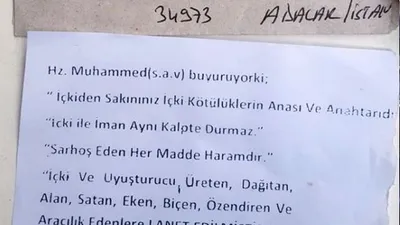 34973 ADALAR/İSTAN
Hz. Muhammed(s.a.v) buyuruyorki;
" İçkiden Sakınınız İçki Kötülüklerin Anası Ve Anahtarıdı
"İçki ile Iman Aynı Kalpte Durmaz."
"Sarhoş Eden Her Madde Haramdır."
"İçki Ve Uyuşturucu Üreten, Dağıtan,
Alan, Satan, Eken, Biçen, Özendiren Ve
Aracılık Edenlere LANET EDİLMİŞTİ